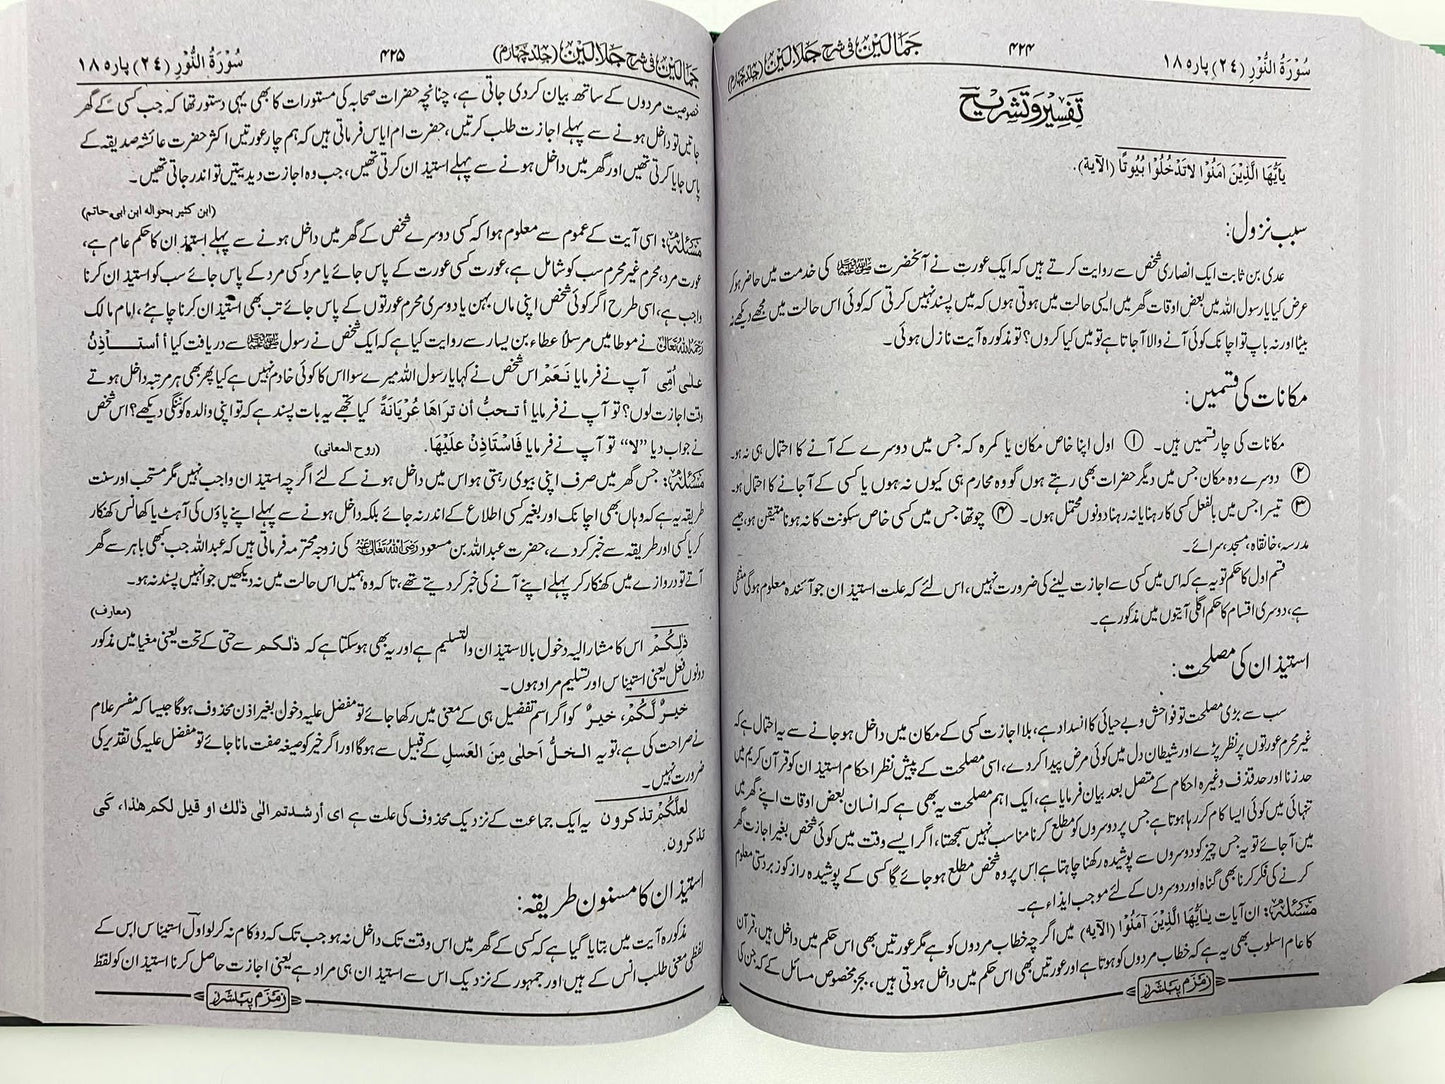 سُوْرَةُ النُّوْرِ (٢٤) پارہ ١٨
۴۲۴
جَمَالَیْن فی شرح جَلَالَیْن (جلد چہارم)
تفسیر و تشریح
یٰۤاَیُّهَا الَّذِیْنَ اٰمَنُوْا لَا تَدْخُلُوْا بُیُوْتًا (الآیة).
سبب نزول:
عدی بن ثابت ایک انصاری شخص سے روایت کرتے ہیں کہ ایک عورت نے آنحضرت ﷺ کی خدمت میں حاضر ہو کر
عرض کیا یا رسول اللہ میں بعض اوقات گھر میں ایسی حالت میں ہوتی ہوں کہ میں پسند نہیں کرتی کہ کوئی اس حالت میں مجھے دیکھے نہ
بیٹا اور نہ باپ تو اچانک کوئی آنے والا آ جاتا ہے تو میں کیا کروں؟ تو مذکورہ آیت نازل ہوئی۔
مکانات کی قسمیں:
مکانات کی چار قسمیں ہیں۔ ① اول اپنا خاص مکان یا کمرہ کہ جس میں دوسرے کے آنے کا احتمال ہی نہ ہو۔
② دوسرے وہ مکان جس میں دیگر حضرات بھی رہتے ہوں گو وہ محارم ہی کیوں نہ ہوں یا کسی کے آ جانے کا احتمال ہو۔
③ تیسرا جس میں بالفعل کسی کا رہنا یا نہ رہنا دونوں محتمل ہوں۔ ④ چوتھا جس میں کسی خاص سکونت کا نہ ہونا متیقن ہو، جیسے
مدرسہ، خانقاہ، مسجد، سرائے۔
قسم اول کا حکم تو یہ ہے کہ اس میں کسی سے اجازت لینے کی ضرورت نہیں، اس لئے کہ علت استیذان جو آئندہ معلوم ہوگی منفی
ہے، دوسری اقسام کا حکم اگلی آیتوں میں مذکور ہے۔
استیذان کی مصلحت:
سب سے بڑی مصلحت تو فواحش و بے حیائی کا انسداد ہے، بلا اجازت کسی کے مکان میں داخل ہو جانے سے یہ احتمال ہے کہ
غیر محرم عورتوں پر نظر پڑے اور شیطان دل میں کوئی مرض پیدا کر دے، اسی مصلحت کے پیش نظر احکام استیذان کو قرآن کریم میں
حد زنا اور حد قذف وغیرہ احکام کے متصل بعد بیان فرمایا ہے، ایک اہم مصلحت یہ بھی ہے کہ انسان بعض اوقات اپنے گھر میں
تنہائی میں کوئی ایسا کام کر رہا ہوتا ہے جس پر دوسروں کو مطلع کرنا مناسب نہیں سمجھتا، اگر ایسے وقت میں کوئی شخص بغیر اجازت گھر
میں آ جائے تو یہ جس چیز کو دوسروں سے پوشیدہ رکھنا چاہتا ہے اس پر وہ شخص مطلع ہو جائے گا کسی کے پوشیدہ راز کو زبردستی معلوم
کرنے کی فکر کرنا بھی گناہ اور دوسروں کے لئے موجب ایذاء ہے۔
مسئلہ: ان آیات یٰاَیُّهَا الَّذِیْنَ آمَنُوْا (الآیه) میں اگرچہ خطاب مردوں کو ہے مگر عورتیں بھی اس حکم میں داخل ہیں، قرآن
کا عام اسلوب بھی یہ ہے کہ خطاب مردوں کو ہوتا ہے اور عورتیں بھی اس حکم میں داخل ہوتی ہیں، بجز مخصوص مسائل کے کہ جن کی
زمزم پبلشرز
جَمَالَیْن فی شرح جَلَالَیْن (جلد چہارم)
۴۲۵
سُوْرَةُ النُّوْرِ (٢٤) پارہ ١٨
خصوصیت مردوں کے ساتھ بیان کر دی جاتی ہے، چنانچہ حضرات صحابہ کی مستورات کا بھی یہی دستور تھا کہ جب کسی کے گھر
جاتیں تو داخل ہونے سے پہلے اجازت طلب کرتیں، حضرت ام ایاس فرماتی ہیں کہ ہم چار عورتیں اکثر حضرت عائشہ صدیقہ کے
پاس جایا کرتی تھیں اور گھر میں داخل ہونے سے پہلے استیذان کرتی تھیں، جب وہ اجازت دیدیتیں تو اندر جاتی تھیں۔
(ابن کثیر بحواله ابن ابی حاتم)
مسئلہ: اسی آیت کے عموم سے معلوم ہوا کہ کسی دوسرے شخص کے گھر میں داخل ہونے سے پہلے استیذان کا حکم عام ہے،
عورت مرد، محرم غیر محرم سب کو شامل ہے، عورت کسی عورت کے پاس جائے یا مرد کسی مرد کے پاس جائے سب کو استیذان کرنا
واجب ہے، اسی طرح اگر کوئی شخص اپنی ماں بہن یا دوسری محرم عورتوں کے پاس جائے تب بھی استیذان کرنا چاہئے، امام مالک
رَحِمَهُ اللّٰهُ تَعَالٰی نے موطا میں مرسلاً عطاء بن یسار سے روایت کیا ہے کہ ایک شخص نے رسول ﷺ سے دریافت کیا أأستاذِنُ
علٰی اُمِّی آپ نے فرمایا نَعَمْ اس شخص نے کہا یا رسول اللہ میرے سوا اس کا کوئی خادم نہیں ہے کیا پھر بھی ہر مرتبہ داخل ہوتے
وقت اجازت لوں؟ تو آپ نے فرمایا أتحبُّ أن تراھا عُرْیَانَةً کیا تجھے یہ بات پسند ہے کہ تو اپنی والدہ کو ننگی دیکھے؟ اس شخص
نے جواب دیا ”لا“ تو آپ نے فرمایا فَاسْتَاذِنْ عَلَیْهَا. (روح المعانی)
مسئلہ: جس گھر میں صرف اپنی بیوی رہتی ہو اس میں داخل ہونے کے لئے اگرچہ استیذان واجب نہیں مگر مستحب اور سنت
طریقہ یہ ہے کہ وہاں بھی اچانک اور بغیر کسی اطلاع کے اندر نہ جائے بلکہ داخل ہونے سے پہلے اپنے پاؤں کی آہٹ یا کھانس کھنکار
کر یا کسی اور طریقہ سے خبر کر دے، حضرت عبداللہ بن مسعود رَضِیَ اللّٰهُ تَعَالٰی عَنْهُ کی زوجہ محترمہ فرماتی ہیں کہ عبداللہ جب بھی باہر سے گھر
آتے تو دروازے میں کھنکار کر پہلے اپنے آنے کی خبر کر دیتے تھے، تاکہ وہ ہمیں اس حالت میں نہ دیکھیں جو انہیں پسند نہ ہو۔
(معارف)
ذٰلِکُمْ اس کا مشار الیہ دخول بالاستیذان والتسلیم ہے اور یہ بھی ہو سکتا ہے کہ ذٰلکم سے حتی کے تحت یعنی مغیا میں مذکور
دونوں فعل یعنی استیناس اور تسلیم مراد ہوں۔
خیرٌ لَّکُمْ، خیرٌ کو اگر اسم تفضیل ہی کے معنی میں رکھا جائے تو مفضل علیہ دخول بغیر اذن محذوف ہوگا جیسا کہ مفسر علام
نے صراحت کی ہے، تو یہ الخلُّ اَحلیٰ مِنَ العَسلِ کے قبیل سے ہوگا اور اگر خیر کو صیغہ صفت مانا جائے تو مفضل علیہ کی تقدیر کی
ضرورت نہیں۔
لعلَّکُمْ تذکرون یہ ایک جماعت کے نزدیک محذوف کی علت ہے ای أرشدتم الیٰ ذلك او قیل لکم هٰذا، کَی
تذکرون.
استیذان کا مسنون طریقہ:
مذکورہ آیت میں بتایا گیا ہے کہ کسی کے گھر میں اس وقت تک داخل نہ ہو جب تک کہ دو کام نہ کر لو اول استیناس اس کے
لفظی معنی طلب انس کے ہیں اور جمہور کے نزدیک اس سے استیذان ہی مراد ہے یعنی اجازت حاصل کرنا استیذان کو لفظ
زمزم پبلشرز